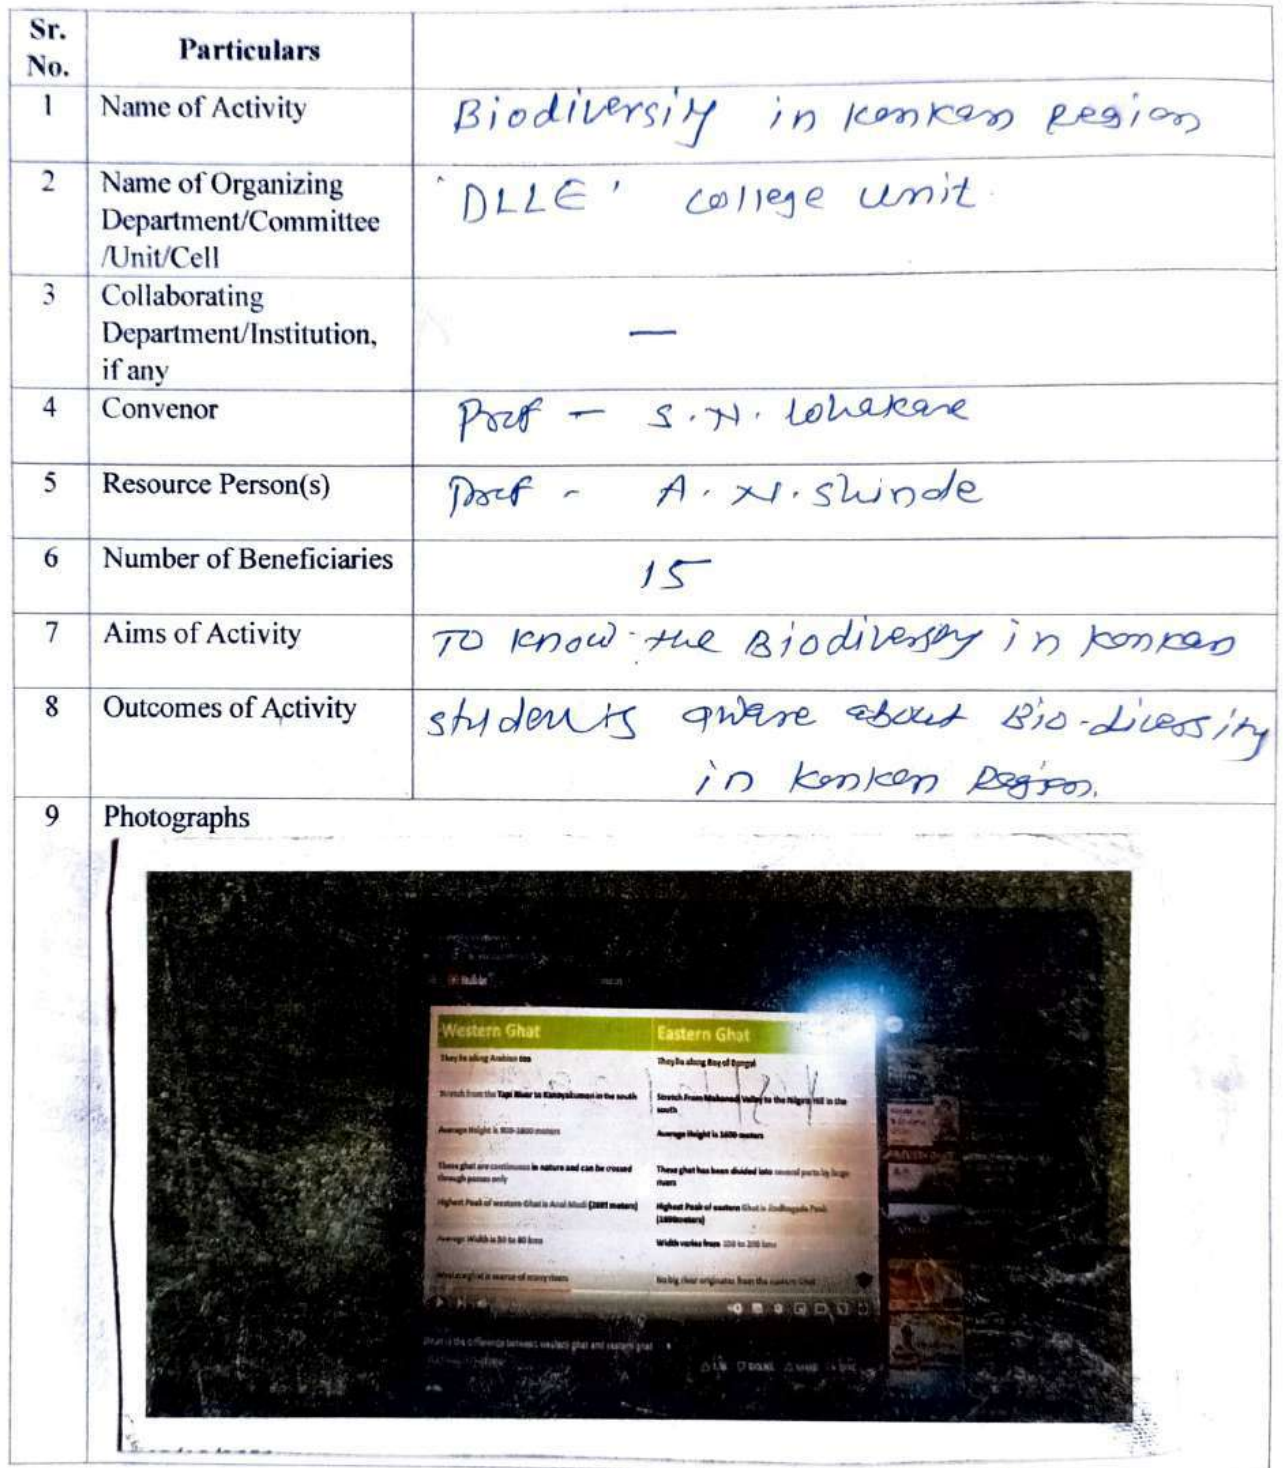 Sr. No.
Particulars
1
Name of Activity
Biodiversity in Konkan Region
2
Name of Organizing
Department/Committee
/Unit/Cell
'DLLE' college unit.
3
Collaborating
Department/Institution,
if any
—
4
Convenor
Prof - S.N. Lohakare
5
Resource Person(s)
Prof - A. N. Shinde
6
Number of Beneficiaries
15
7
Aims of Activity
To know the Biodiversity in Konkan
8
Outcomes of Activity
students aware about Bio-divessity
in Konkan Region.
9
Photographs
Western Ghat
Eastern Ghat
They lie along Arabian sea
They lie along Bay of Bengal
Stretch from the Tapi River to Kanayakumari in the south
Stretch From Mahanadi Valley to the Nilgiri Hill in the
south
Average Height is 900-1600 meters
Average Height is 1600 meters
These ghat are continuous in nature and can be crossed
through passes only
These ghat has been divided into several parts by large
rivers
Highest Peak of western Ghat is Anai Mudi
Highest Peak of eastern Ghat is
Average Width is 50 to 80 kms
Width varies from 100 to 200 kms
ghat is source of many rivers
No big river originates from the eastern Ghat
What is the difference between western ghat and eastern ghat